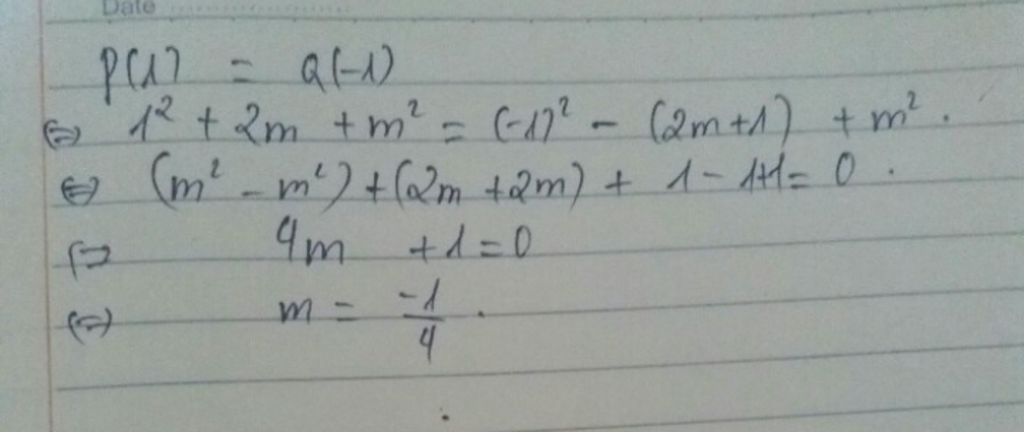 Date
P(1) = Q(-1)
⇔ 1² + 2m + m² = (-1)² - (2m+1) + m².
⇔ (m² - m²) + (2m + 2m) + 1 - 1+1 = 0.
⇔ 4m + 1 = 0
⇔ m = -1/4.